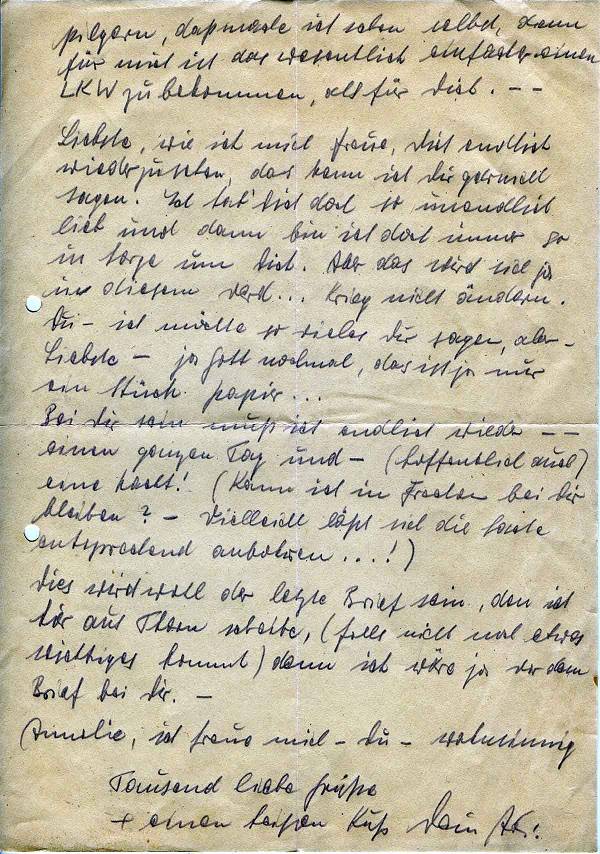 pilgern, das mache ich schon selbst, denn
für mich ist das wesentlich einfacher einen
LKW zu bekommen, als für Dich. - -
Liebste, wie ich mich freue, Dich endlich
wiederzusehen, das kann ich Dir gar nicht
sagen. Ich hab' Dich doch so unendlich
lieb und dann bin ich doch immer so
in Sorge um Dich. Aber das wird sich ja
in diesem ... Krieg nicht ändern.
Du - ich möchte so vieles Dir sagen, aber -
Liebste - ja Gott nochmal, das ist ja nur
ein Stück Papier...
Bei Dir sein muß ich endlich wieder - -
einen ganzen Tag und - (hoffentlich auch)
eine Nacht! (Kann ich in bei Dir
bleiben? - Vielleicht läßt sich die Sache
entsprechend anbohren...!)
Dies wird wohl der letzte Brief sein, den ich
hier aus Thorn schreibe, (falls nicht noch etwas
wichtiges kommt) denn ich wäre ja vor dem
Brief bei Dir. -
Annelie, ich freue mich - Du - wahnsinnig
Tausend liebe Grüße
+ einen heißen Kuß Dein